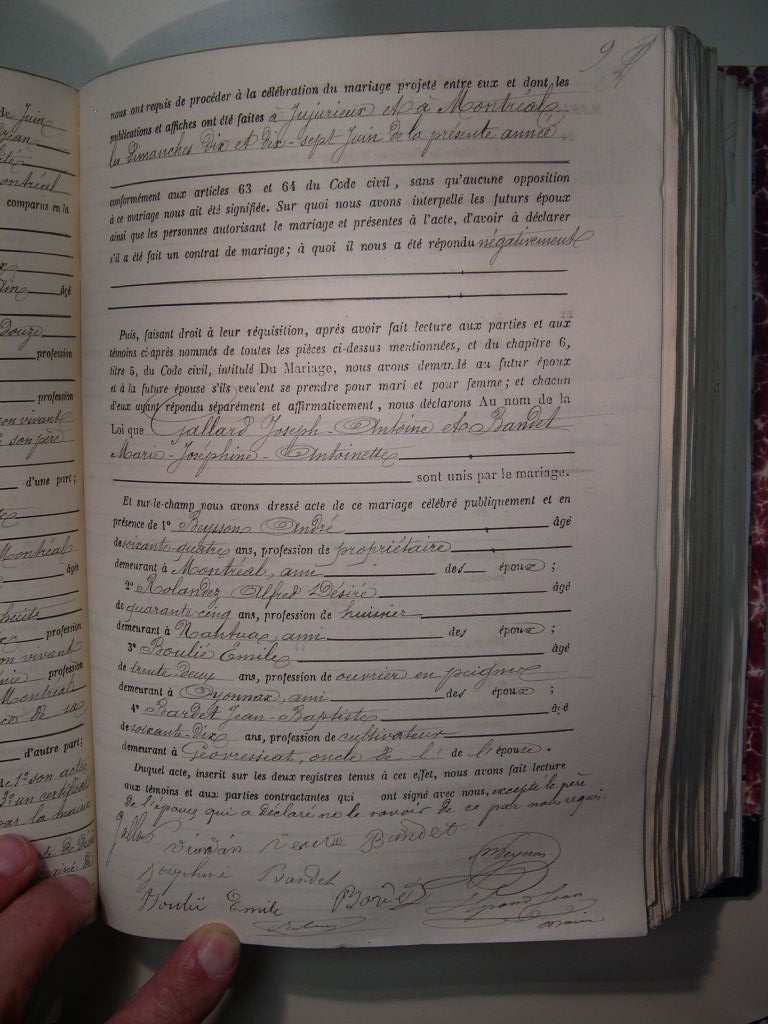 de Juin
Montréal
comparus en la
âgé
Douze
profession
profession
son vivant
son père
d'une part;
Montréal
âgé
profession
on vivant
profession
Montréal
de sa
d'autre part;
de 1º son acte
2º un certificat
par la mairie
9
nous ont requis de procéder à la célébration du mariage projeté entre eux et dont les
publications et affiches ont été faites à Jujurieux et à Montréal
les Dimanches dix et dix-sept Juin de la présente année
conformément aux articles 63 et 64 du Code civil, sans qu'aucune opposition
à ce mariage nous ait été signifiée. Sur quoi nous avons interpellé les futurs époux
ainsi que les personnes autorisant le mariage et présentes à l'acte, d'avoir à déclarer
s'il a été fait un contrat de mariage; à quoi il nous a été répondu négativement
Puis, faisant droit à leur réquisition, après avoir fait lecture aux parties et aux
témoins ci-après nommés de toutes les pièces ci-dessus mentionnées, et du chapitre 6,
titre 5, du Code civil, intitulé Du Mariage, nous avons demandé au futur époux
et à la future épouse s'ils veulent se prendre pour mari et pour femme; et chacun
d'eux ayant répondu séparément et affirmativement, nous déclarons Au nom de la
Loi que Gallard Joseph-Antoine et Bandet
Marie-Joséphine-Antoinette
sont unis par le mariage.
Et sur-le-champ nous avons dressé acte de ce mariage célébré publiquement et en
présence de 1º Beysson André âgé
de soixante-quatre ans, profession de propriétaire
demeurant à Montréal, ami des époux;
2º Rolandez Alfred Désiré âgé
de quarante-cinq ans, profession de huissier
demeurant à Nantua, ami des époux;
3º Boulié Emile âgé
de trente-deux ans, profession de ouvrier en peignes
demeurant à Oyonnax, ami des époux;
4º Bardet Jean-Baptiste âgé
de soixante-dix ans, profession de cultivateur
demeurant à Géovressiat, oncle de l' de l'épouse.
Duquel acte, inscrit sur les deux registres tenus à cet effet, nous avons fait lecture
aux témoins et aux parties contractantes qui ont signé avec nous, excepté le père
de l'épouse qui a déclaré ne le savoir de ce par nous requis.
Bandet
Josephine Bandet
Boulié Emile